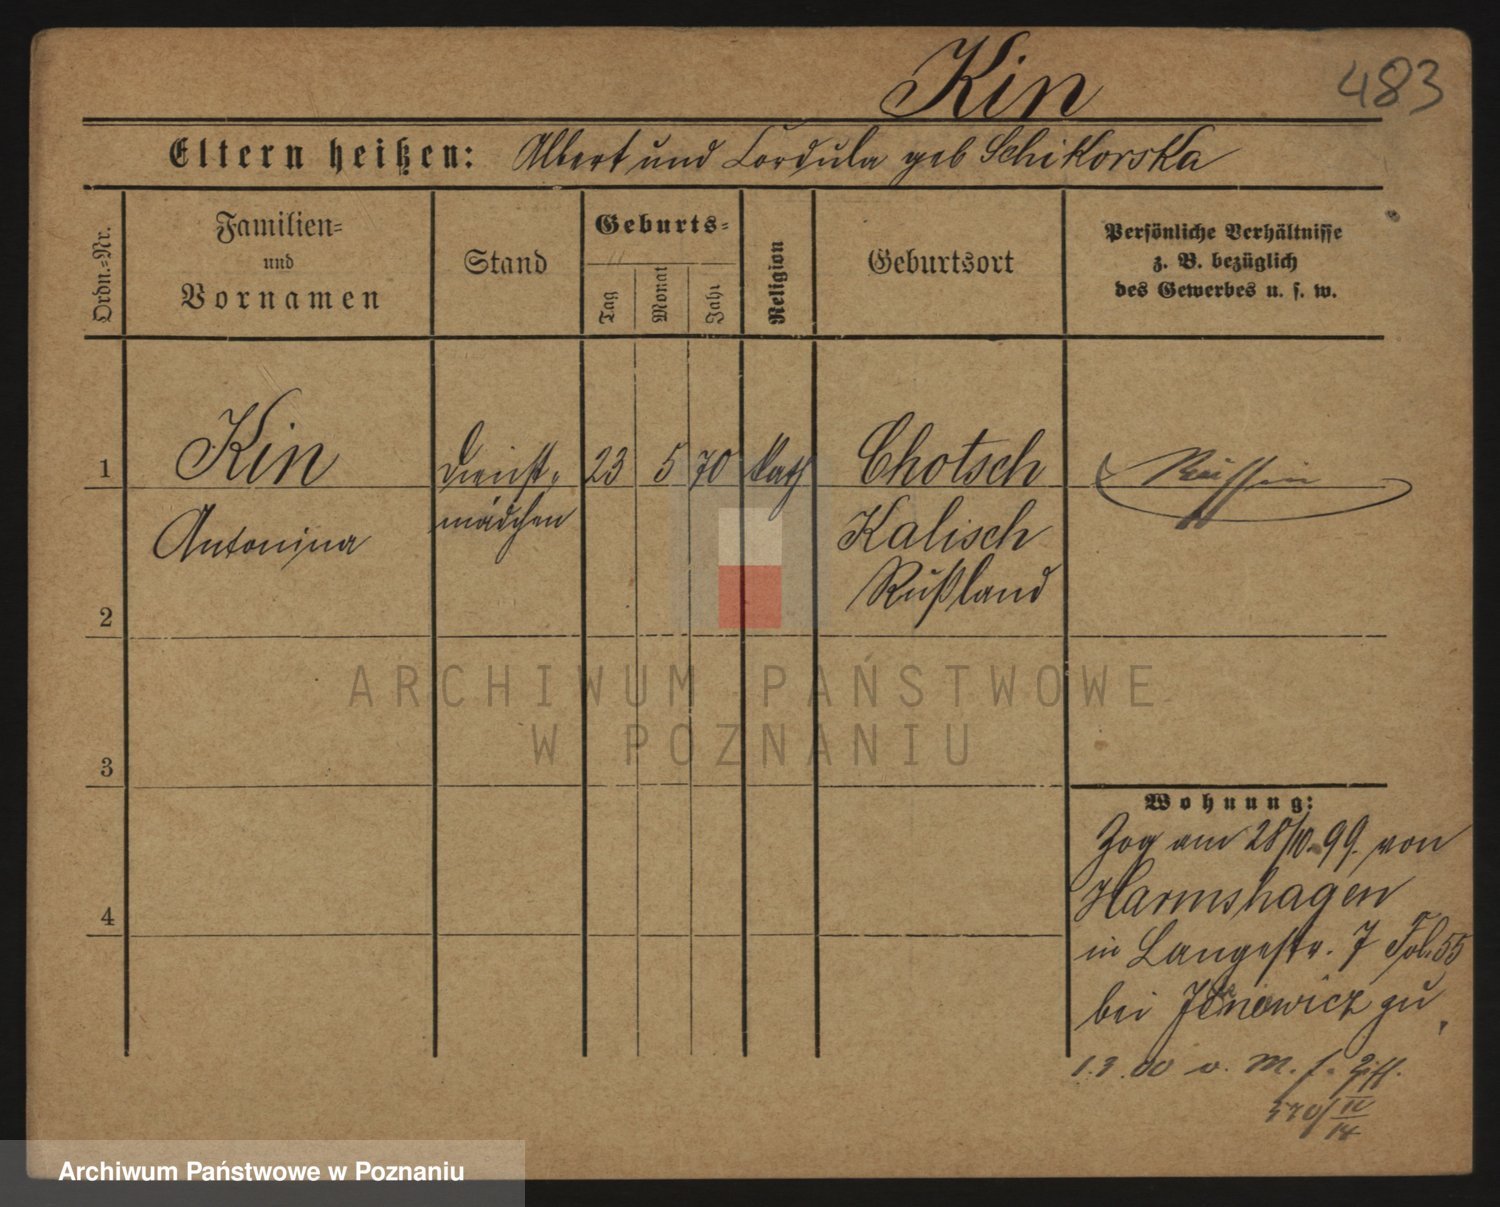 Kin
483
Eltern heißen: Albert und Cordula geb Schikorska
Ordn.=Nr.
Familien= und Vornamen
Stand
Geburts=
Tag
Monat
Jahr
Religion
Geburtsort
Persönliche Verhältnisse
z. B. bezüglich
des Gewerbes u. s. w.
1
Kin
Antonina
Dienst=
mädchen
23
5
70
kath
Chotsch
Kalisch
Rußland
Russin
2
3
4
Wohnung:
Zog am 28/10.99. von
Harmshagen
in Langestr. 7 Fol. 55
bei Janowicz zu
1.3.00 v. M. f.
ARCHIWUM PAŃSTWOWE
W POZNANIU
Archiwum Państwowe w Poznaniu